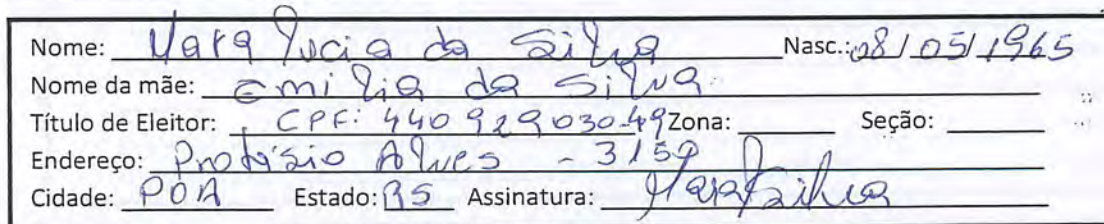 Nome: Mara Lucia da Silva Nasc.: 08/05/1965
Nome da mãe: Emilia da Silva
Título de Eleitor: CPF: 440 929 030-49 Zona: Seção:
Endereço: Protásio Alves - 3150
Cidade: POA Estado: RS Assinatura: Mara Silva